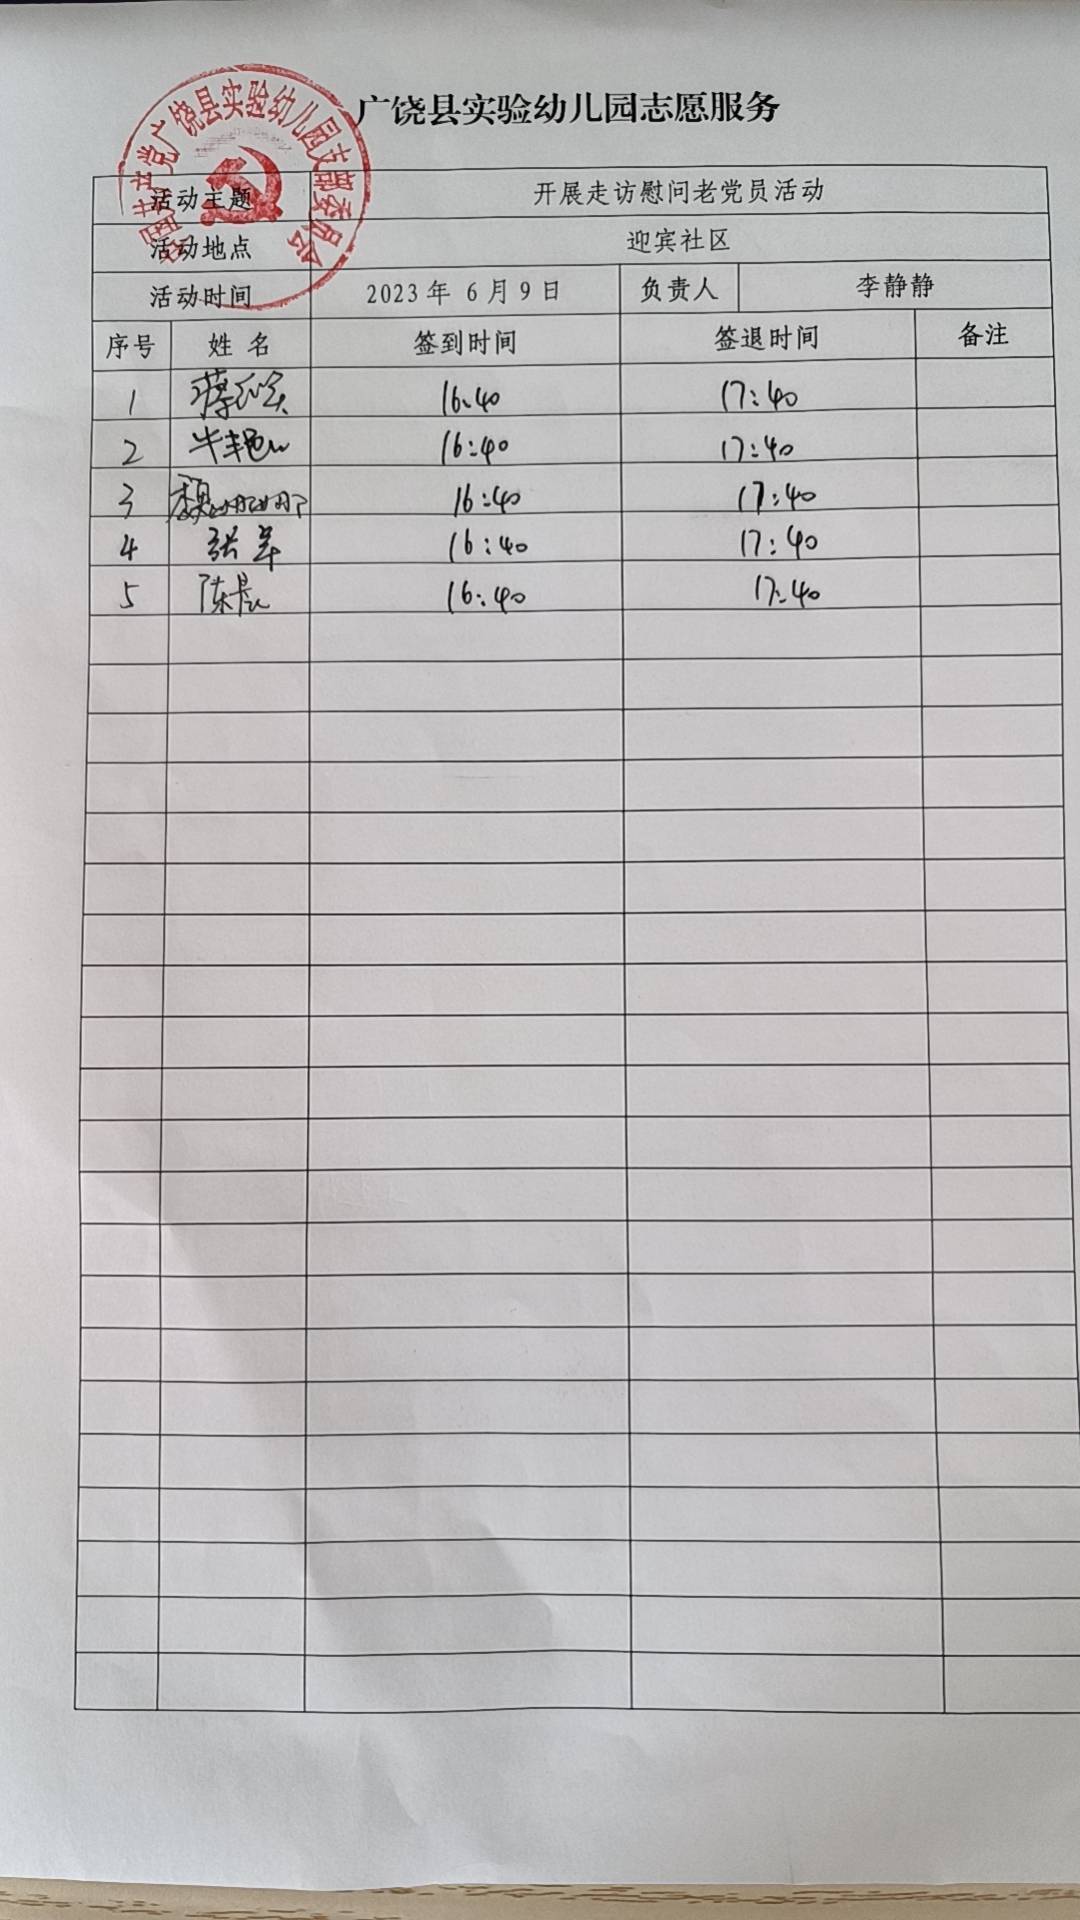 广饶县实验幼儿园志愿服务
中国共产党广饶县实验幼儿园支部委员会
活动主题 开展走访慰问老党员活动
活动地点 迎宾社区
活动时间 2023年 6月9日 负责人 李静静
序号 姓 名 签到时间 签退时间 备注
1 16:40 17:40
2 牛艳 16:40 17:40
3 魏娜娜 16:40 17:40
4 张军 16:40 17:40
5 陈晨 16:40 17:40